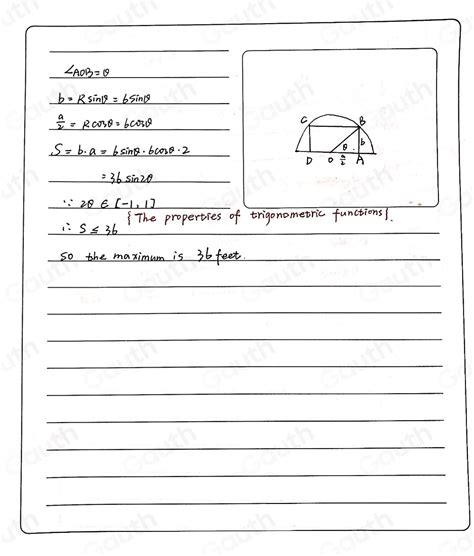 ∠AOB=θ
b = R sinθ = 6sinθ
a/2 = R cosθ = 6cosθ
S = b·a = 6sinθ·6cosθ·2
= 36 sin2θ
∵ 2θ ∈ [-1,1]
{The properties of trigonometric functions}.
∴ S ≤ 36
so the maximum is 36 feet.
C B
θ b
D O a/2 A
Gauth